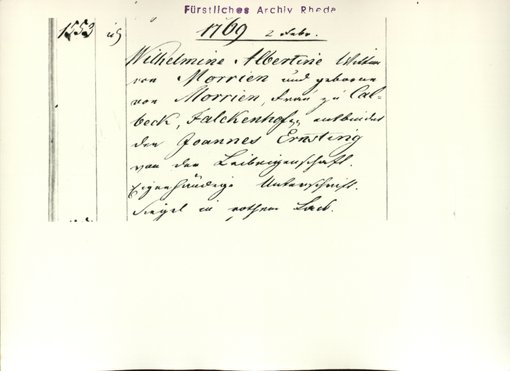 Fürstliches Archiv Rhede
1553
1769 2 Febr.
Wilhelmine Albertine Wittwe
von Morrien und geborne
von Morrien, Frau zu Cal-
beck, Falckenhof, entbindet
den Joannes Ernsting
von der Leibeigenschaft.
Eigenhändige Unterschrift.
Siegel in rothem Lack.